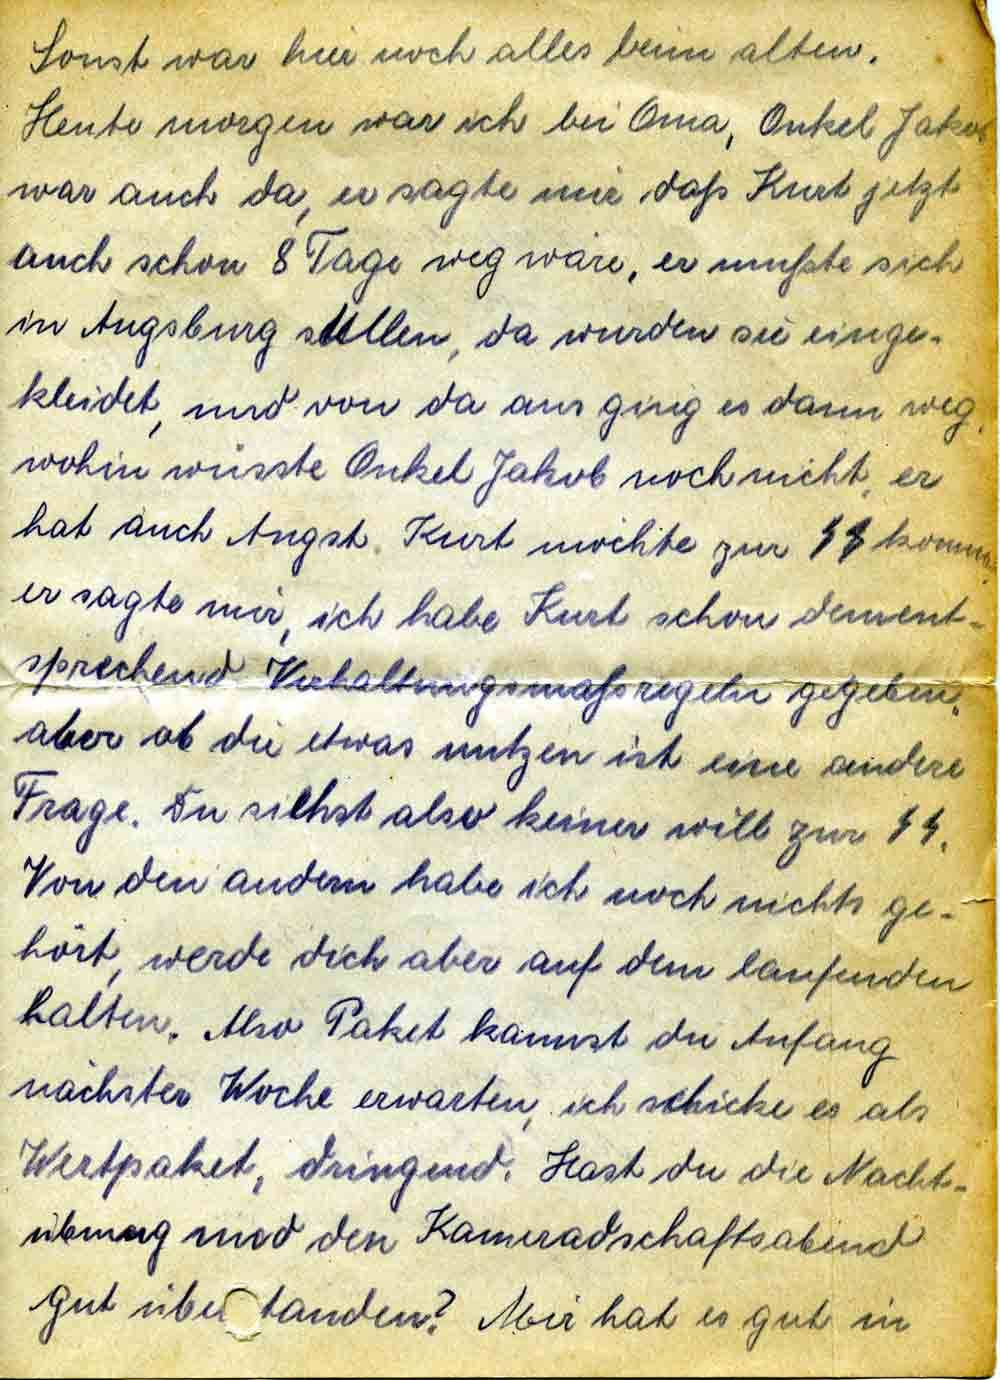 Sonst war hier noch alles beim alten.
Heute morgen war ich bei Oma, Onkel Jakob
war auch da, er sagte mir daß Kurt jetzt
auch schon 8 Tage weg wäre, er mußte sich
in Augsburg stellen, da wurden sie einge-
kleidet, und von da aus ging es dann weg,
wohin wüsste Onkel Jakob noch nicht, er
hat auch Angst Kurt möchte zur SS kommen,
er sagte mir, ich habe Kurt schon dement-
sprechend Verhaltungsmaßregeln gegeben,
aber ob die etwas nutzen ist eine andere
Frage. Du siehst also keiner will zur SS.
Von den andern habe ich noch nichts ge-
hört, werde dich aber auf dem laufenden
halten. Also Paket kannst du Anfang
nächster Woche erwarten, ich schicke es als
Wertpaket, dringend. Hast du die Nacht-
übung und den Kameradschaftsabend
gut über tanden? Mir hat es gut in